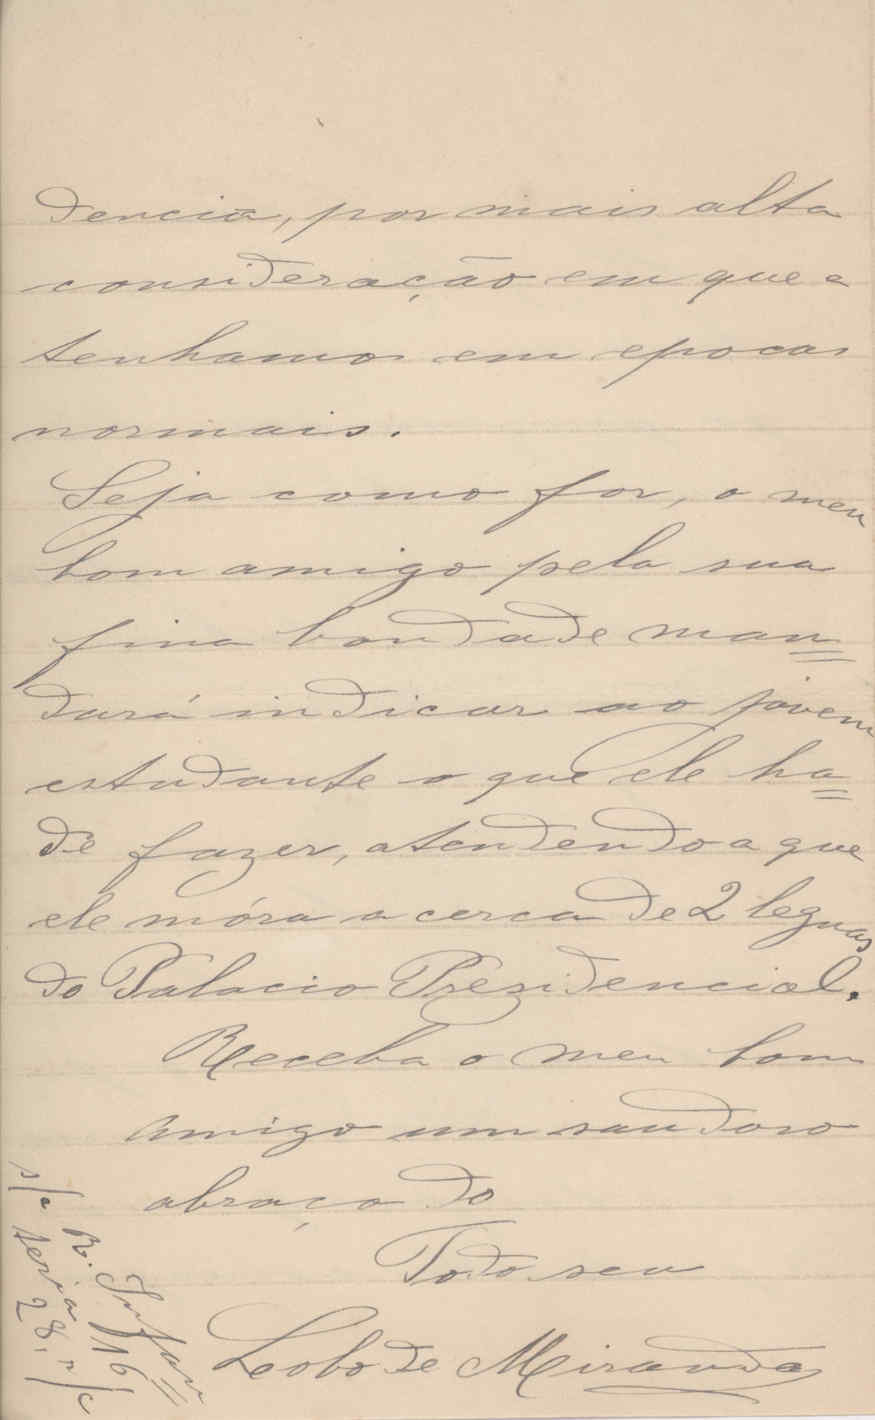 dencia, por mais alta
consideração em que a
tenhamos em epocas
normais.
Seja como for, o meu
bom amigo pela sua
fina bondade man=
dará indicar ao jóvem
estudante o que ele ha=
de fazer, atendendo a que
ele móra a cerca de 2 leguas
do Palacio Prezidencial.
Receba o meu bom
amigo um saudoso
abraço do
Todo seu
Lobo de Miranda
s/c R. Infan=
teria 16,
28, r/c